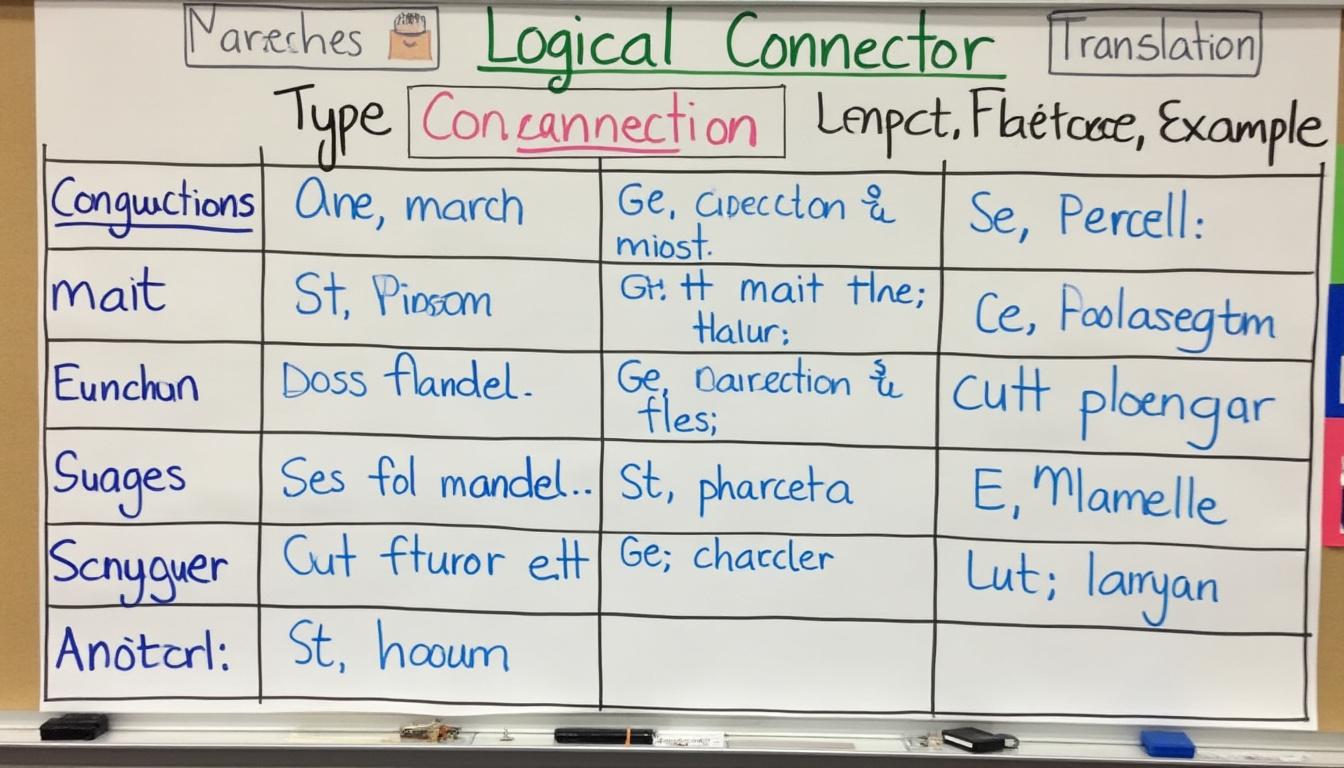 Nareches
Logical Connector
Translation
Type Concannection Lenpct, Example
Conguctions
Ane, march
Ge, &
miost.
Se, Percell:
mait
St,
Gr. tt mait tlne;
Halur;
Ce, Foolasegtm
Eunchan
Doss flandel.
Ge, Dairection &
fles;
Cutt ploengar
Suages
Ses fol mandel..
St, pharceta
E, Mamelle
Scnyguer
Cut fturor ett
Ge; chaccler
Lut; lamyan
Anòtcrl:
St, hooum